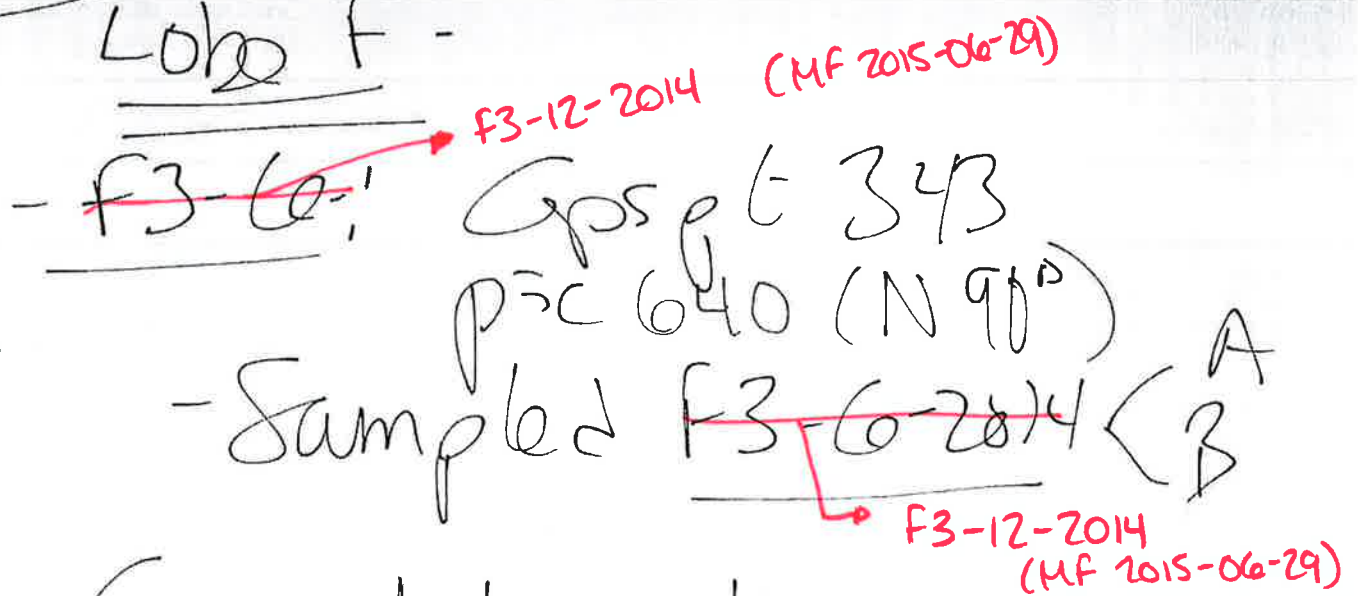 Lobe F -
F3-12-2014 (MF 2015-06-29)
- F3-6-! Gps pt 343
pic 640 (N 90°)
- Sampled F3-6-2014 < A
B
F3-12-2014
(MF 2015-06-29)